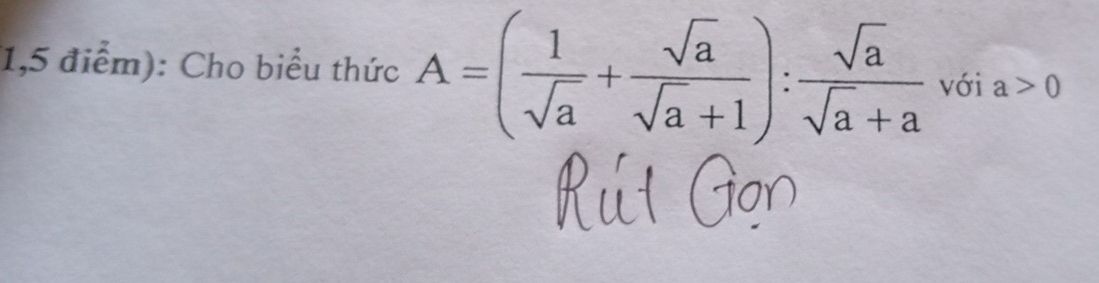 1,5 điểm): Cho biểu thức A = (1/√a + √a/(√a + 1)) : √a/(√a + a) với a > 0
Rút Gọn